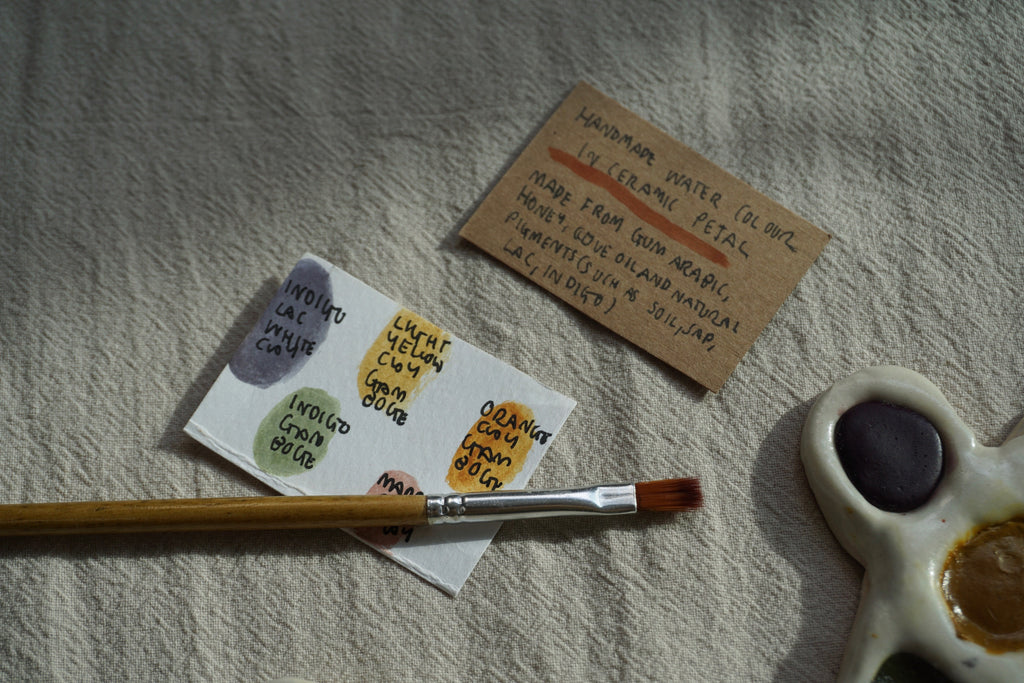 HANDMADE WATER COLOUR
IN CERAMIC PETAL
MADE FROM GUM ARABIC,
HONEY, OLIVE OIL AND NATURAL
PIGMENTS (SUCH AS SOIL, SAP,
LAC, INDIGO)
INDIGO
LAC
WHITE
CLAY
LIGHT
YELLOW
CLAY
GAM
BOGE
INDIGO
GAM
BOGE
ORANGE
CLAY
GAM
BOGE